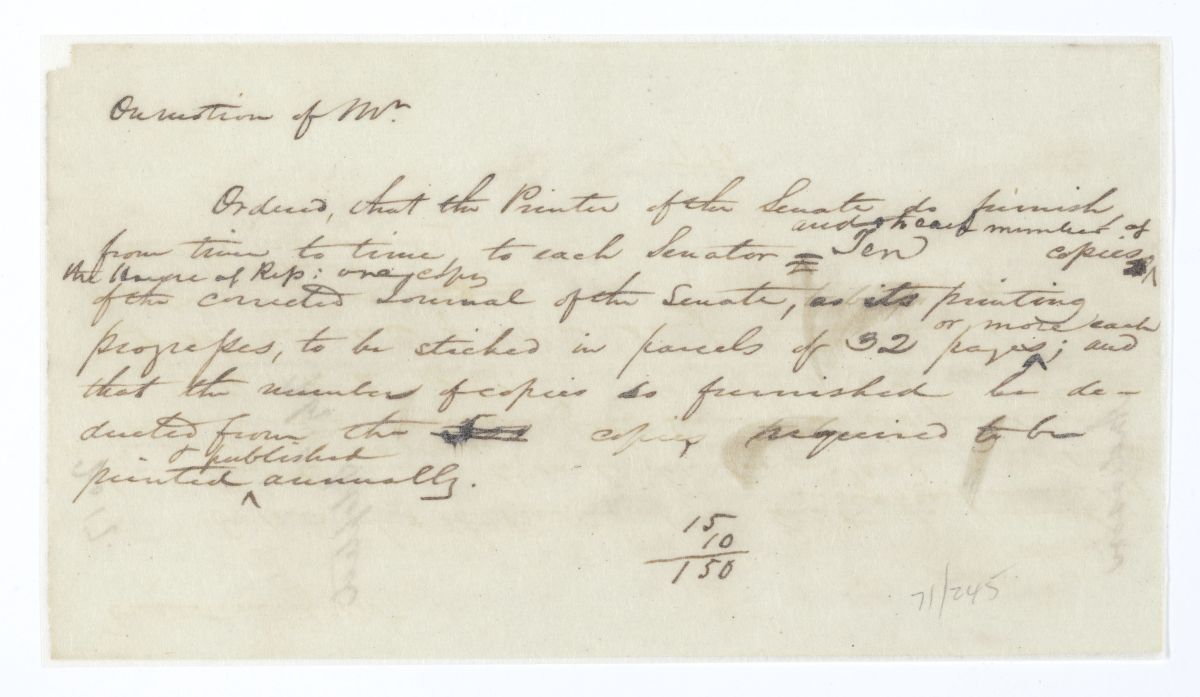 On motion of Mr.
Ordered, that the Printer of the Senate do furnish
and to each member of
from time to time to each Senator = Ten copies
the House of Rep: one copy
of the corrected Journal of the Senate, as its printing
or more each
progresses, to be stiched in parcels of 32 pages; and
that the number of copies so furnished be de-
ducted from the copies required to be
& published
printed annually.
15
10
150
71/245